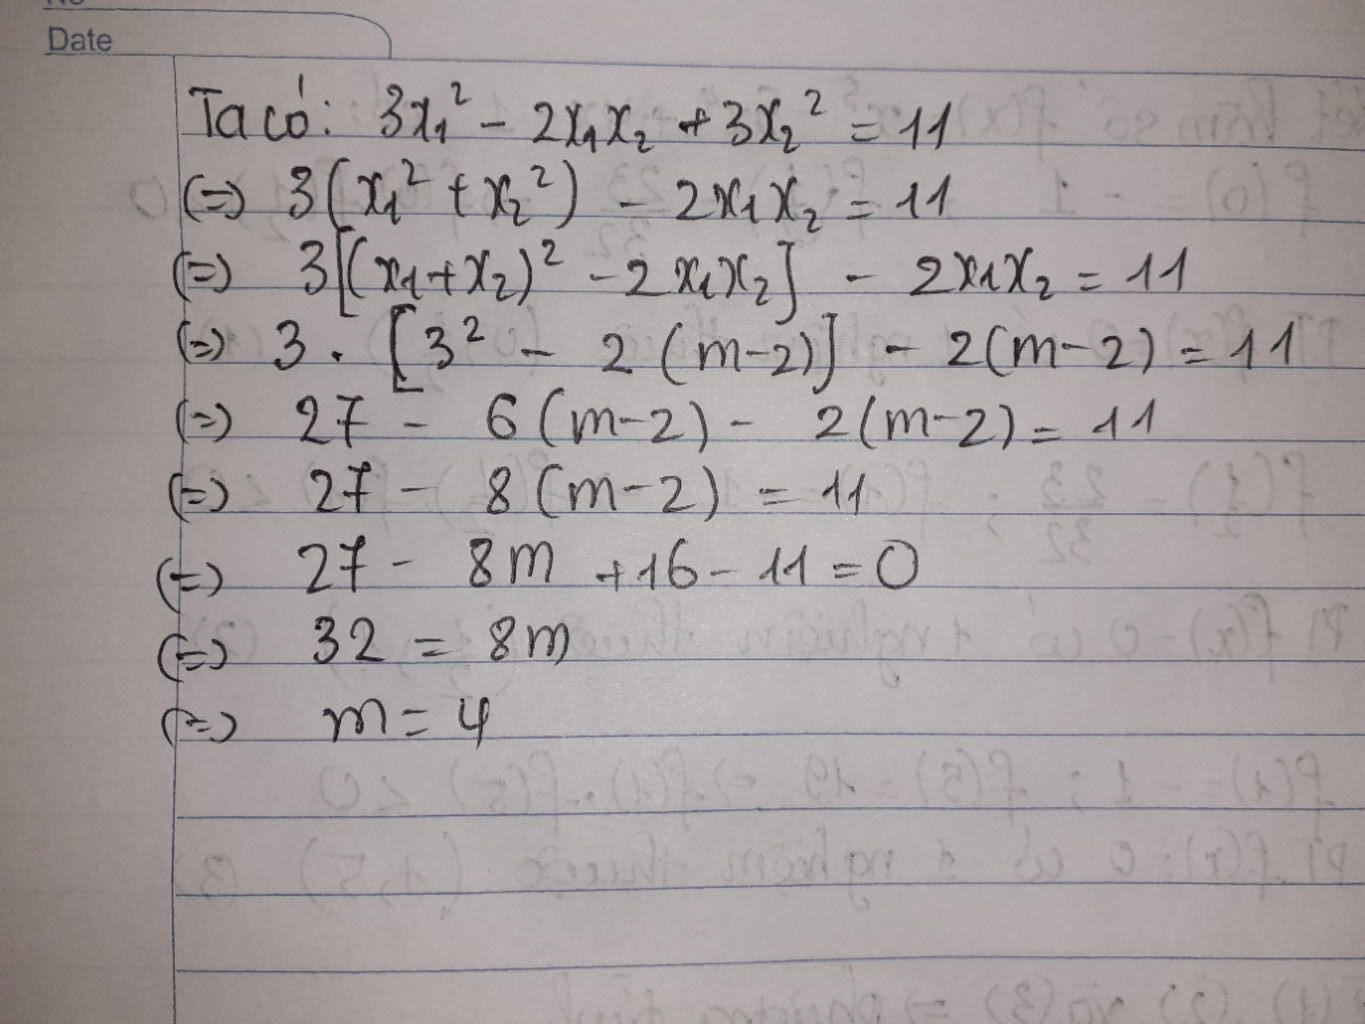 Date
Ta có: 3x₁² - 2x₁x₂ + 3x₂² = 11
(=) 3(x₁² + x₂²) - 2x₁x₂ = 11
(=) 3[(x₁+x₂)² - 2x₁x₂] - 2x₁x₂ = 11
(=) 3 . [3² - 2(m-2)] - 2(m-2) = 11
(=) 27 - 6(m-2) - 2(m-2) = 11
(=) 27 - 8(m-2) = 11
(=) 27 - 8m + 16 - 11 = 0
(=) 32 = 8m
(=) m = 4